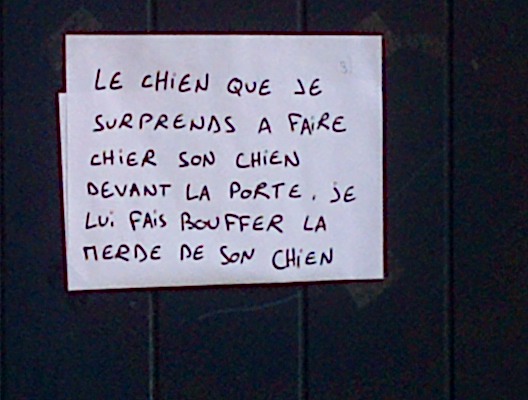 LE CHiEN QUE JE
SURPRENDS A FAiRE
CHiER SON CHiEN
DEVANT LA PORTE. JE
LUi FAiS BOUFFER LA
MERDE DE SON CHiEN